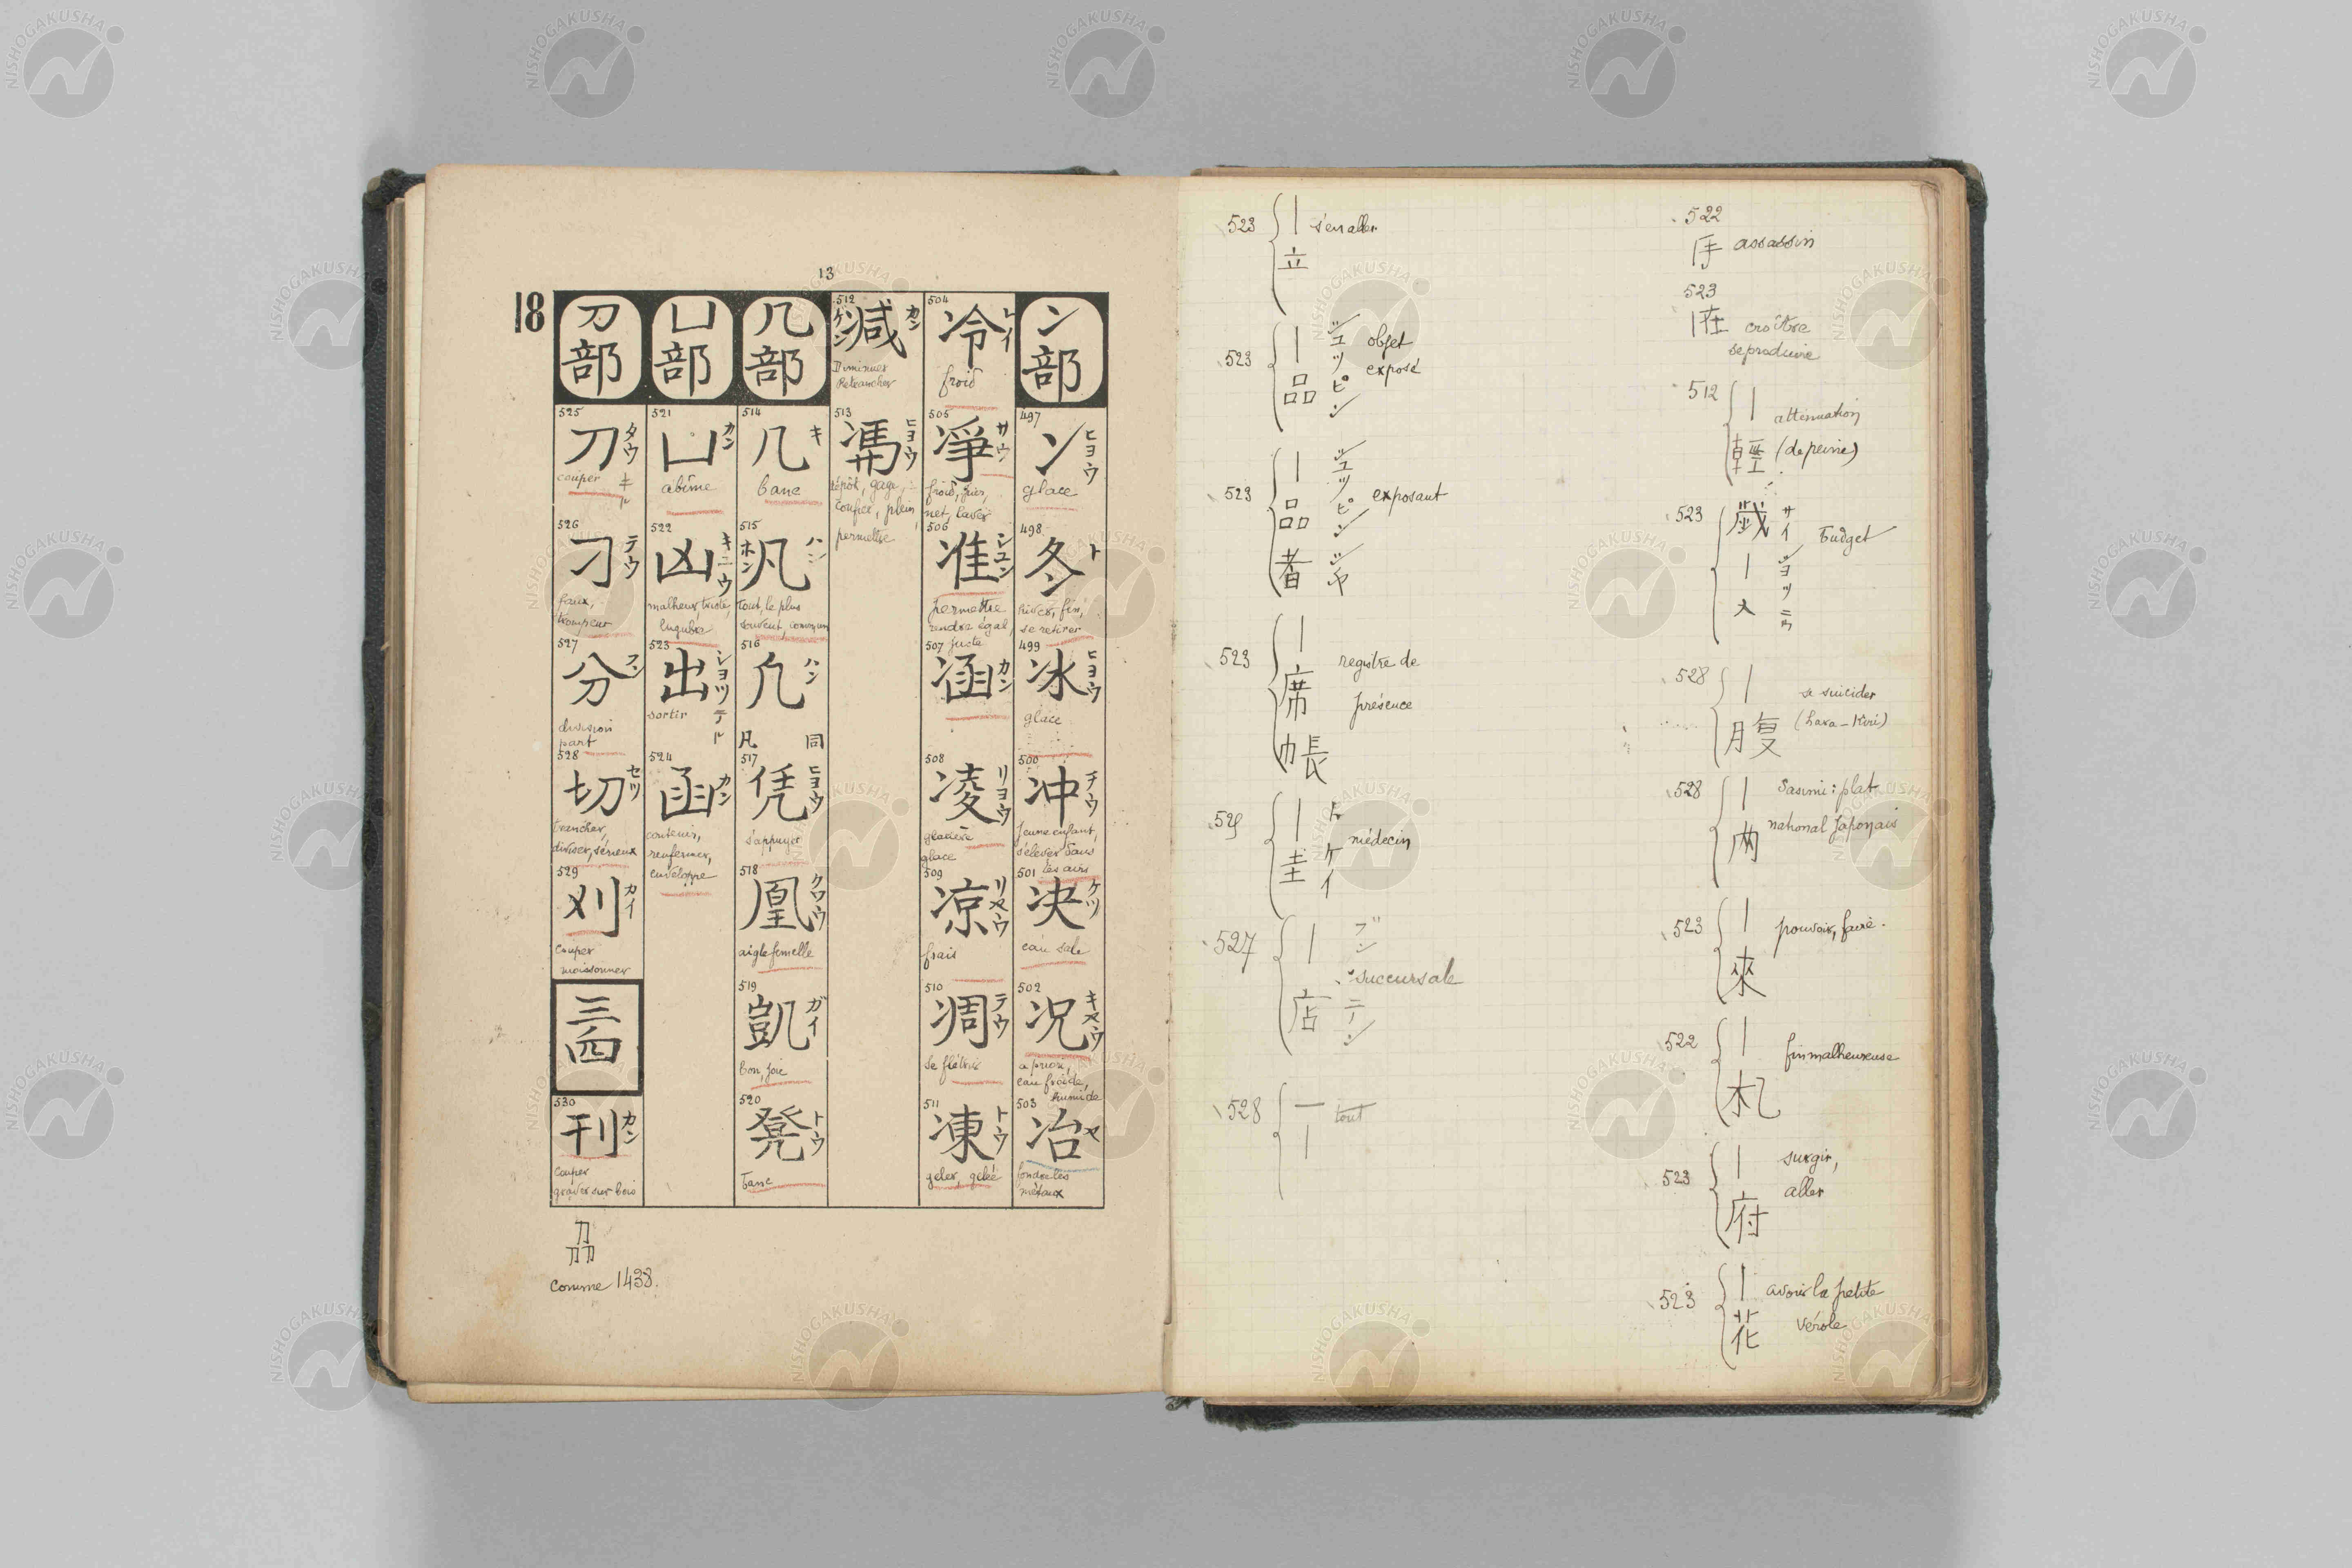 13
18
冫部
497
冫
ヒヨウ
glace
498
冬
ト
hiver, fin,
se retirer
499
冰
ヒヨウ
glace
500
冲
チウ
Jeune enfant,
s'élever dans
les airs
501
决
ケツ
eau sale
502
况
キヤウ
a priori,
eau froide,
humide
503
冶
ヤ
fondre les
métaux
504
冷
レイ
froid
505
凈
サウ
froid, pur,
net, laver
506
准
シユン
permettre
rendre égal,
juste
507
涵
カン
508
凌
リヨウ
glacière
glace
509
凉
リヤウ
frais
510
凋
テウ
se flétrir
511
凍
トウ
geler, gelée
512
减
カン
ゲン
Diminuer
Retrancher
513
馮
ヒヨウ
dépôt, gage,
couper, plein,
permettre
几部
514
几
キ
banc
515
凡
ハン
ホン
tout, le plus
souvent, commun
516
凢
ハン
凡 同
517
凭
ヒヨウ
s'appuyer
518
凰
クワウ
aigle femelle
519
凱
ガイ
bon, joie
520
凳
トウ
banc
凵部
521
凵
カン
abîme
522
凶
キユウ
malheur, triste,
lugubre
523
出
シヨツ
デル
sortir
524
函
カン
contenir,
renfermer,
enveloppe
刀部
525
刀
タウ
キル
couper
526
刁
テウ
faux,
trompeur
527
分
フン
division
part
528
切
セツ
trancher,
diviser, sérieux
529
刈
カイ
couper
moissonner
三四
530
刊
カン
couper
graver sur bois
刀
刀刀
comme 1438.
523
｜ s'en aller
立
523
｜ シユツ objet
品 ピン exposé
523
｜ シユツ
品 ピン exposant
者 シヤ
523
｜ registre de
席 présence
帳
｜ ト
圭 ケイ médecin
527
｜ ブン
succursale
店 テン
528
一 tout
｜
522
｜手 assassin
523
｜在 croître
se produire
512
｜ attenuation
輕 (de peine)
523
歳 サイ
｜ シヨツ budget
入 ニウ
528
｜ se suicider
腹 (hara-kiri)
528
｜ Sasimi : plat
national Japonais
523
｜ pouvoir, faire.
來
522
｜ fin malheureuse
札
523
｜ surgir,
府 aller
523
｜ avoir la petite
花 vérole
NISHOGAKUSHA